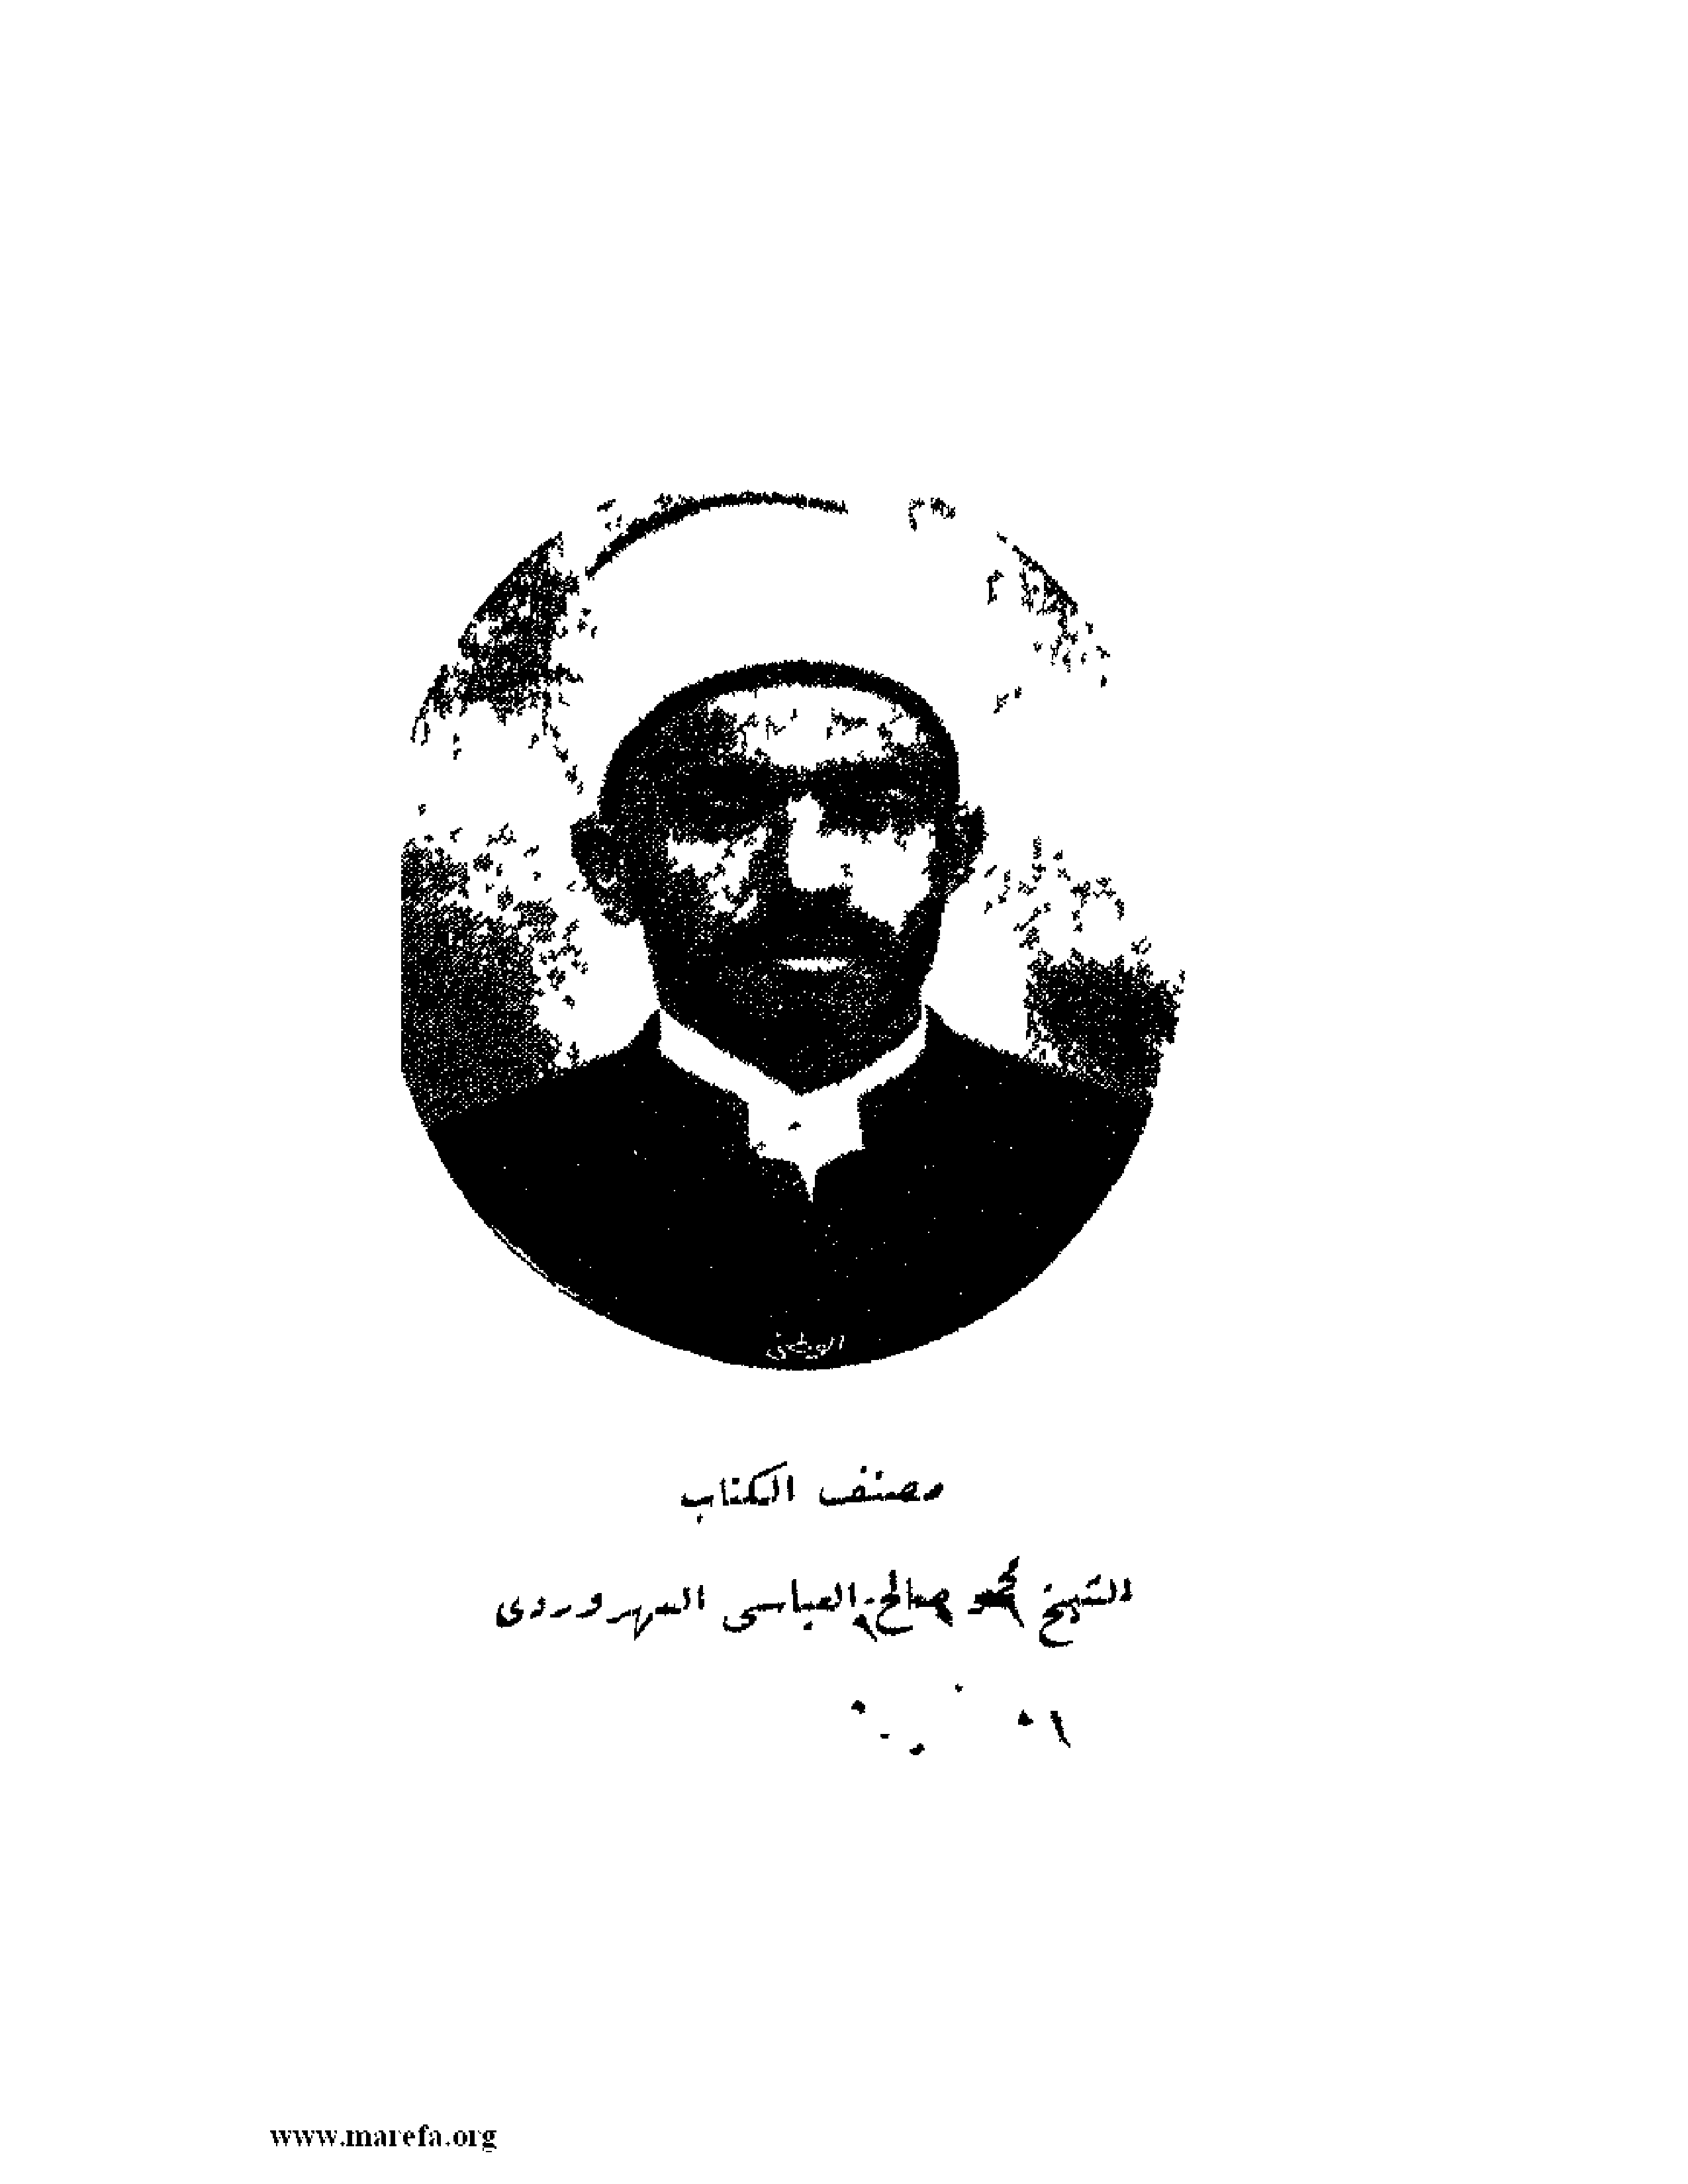 مصنف الكتاب
الشيخ محمد صالح العباسى السهروردى
www.marefa.org